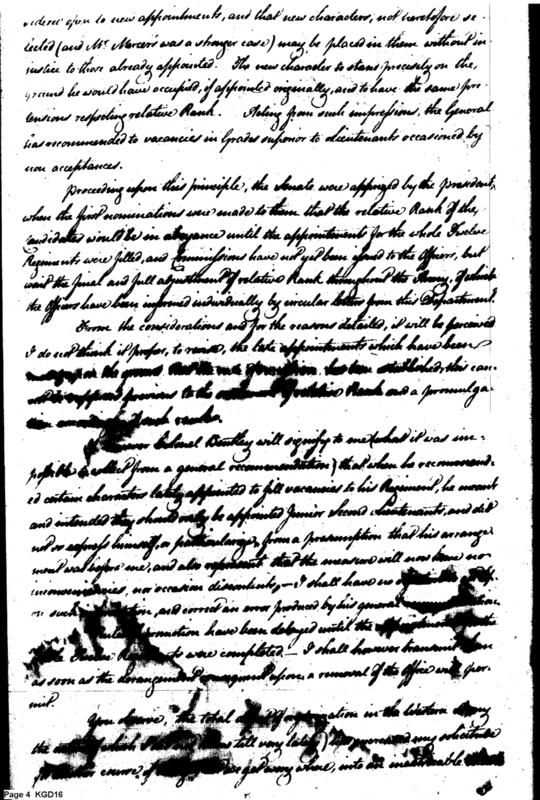 upon to new appointments, and that new characters, not heretofore se-
lected (and Mr. Mercer's was a stronger case) may be placed in them without in-
justice to those already appointed. The new character to stand precisely on the,
ground he would have occupied, if appointed originally, and to have the same pre-
tensions respecting relative Rank. Acting from such impressions, the General
has recommended to vacancies in Grades superior to Lieutenants occasioned by
non acceptances.
Proceeding upon this principle, the Senate were apprized by the President,
when the first nominations were made to them that the relative Rank of the,
candidates would be in abeyance until the appointments for the whole Twelve
Regiments were filled, and Commissions have not yet been issued to the Officers, but
wait the final and full adjustment of relative Rank throughout the Army, of which
the Officers have been informed individually by circular letters from this Department.
From the considerations and for the reasons detailed, it will be perceived
I do not think it proper, to revise, the late appointments which have been
on the ground that the rule of promotion has been established, this can-
not be supposed previous to the settlement of relative Rank and a promulga-
tion such ranks.
Colonel Bentley will signify to me (what it was im-
possible to collect from a general recommendation) that when he recommend-
ed certain characters lately appointed to fill vacancies to his Regiment, he meant
and intended they should only be appointed Junior Second Lieutenants, and did
not so express himself, or particularize, from a presumption that his arrange-
ment was before me, and also represent that the measure will now have no
inconveniences, nor occasion discontents, — I shall have no
on such and correct an error produced by his general
promotion have been delayed until the
the Twelve Regiments were completed. — I shall however transmit them
as soon as the derangement consequent upon, a removal of the Office will per-
mit.
You observe, the total of organization in the Western Army
the of which I till very lately) my solicitude
course of get any where, into an
Page 4 KGD16